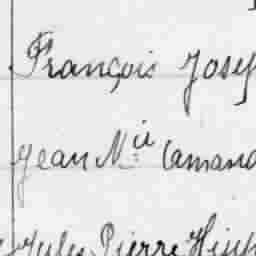 François Josep
Jean Mie Camand
Jules Pierre Hipp